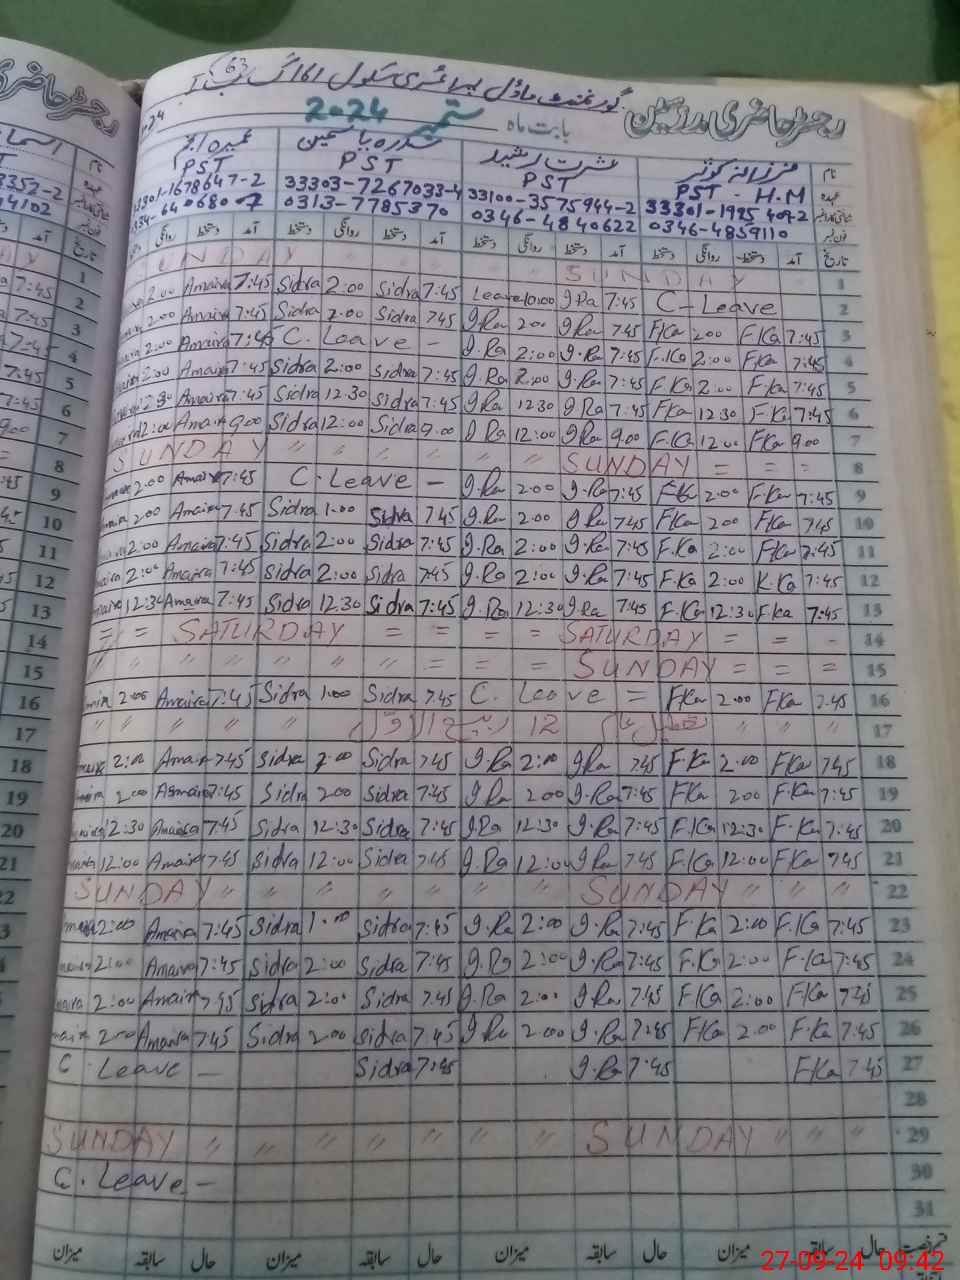 گورنمنٹ ماڈل پرائمری سکول 161 گ ب
رجسٹر حاضری مدرسین بابت ماہ ستمبر 2024
نام فرزانہ کوثر عشرت رشید سدرہ یاسمین
عہدہ PST - H.M PST PST PST
33301-1925407-2 33100-3575944-2 33303-7267033-4 33301-1678647-2
فون نمبر 0346-4859110 0346-4840622 0313-7785370 0334-6406807
تاریخ آمد دستخط روانگی دستخط آمد دستخط روانگی دستخط آمد دستخط روانگی دستخط آمد دستخط روانگی
SUNDAY SUNDAY 1
2:00 Amaira 7:45 Sidra 2:00 Sidra 7:45 Leave 10:00 g Ra 7:45 C-Leave 2
2:00 Amaira 7:45 Sidra 2:00 Sidra 7:45 g.Ra 2:00 g.Ra 7:45 F.Ka 2:00 F.Ka 7:45 3
2:00 Amaira 7:45 C. Leave - g.Ra 2:00 g.Ra 7:45 F.Ka 2:00 F.Ka 7:45 4
2:00 Amaira 7:45 Sidra 2:00 Sidra 7:45 g.Ra 2:00 g.Ra 7:45 F.Ka 2:00 F.Ka 7:45 5
12:30 Amaira 7:45 Sidra 12:30 Sidra 7:45 g Ra 12:30 g Ra 7:45 F Ka 12:30 F.Ka 7:45 6
12:00 Amaira 9:00 Sidra 12:00 Sidra 9:00 g Ra 12:00 g Ra 9:00 F.Ka 12:00 F Ka 9:00 7
SUNDAY " " " " " " SUNDAY = = = 8
2:00 Amaira 7:45 C. Leave - g.Ra 2:00 g.Ra 7:45 F.Ka 2:00 F.Ka 7:45 9
2:00 Amaira 7:45 Sidra 1:00 Sidra 7:45 g.Ra 2:00 g.Ra 7:45 F Ka 2:00 F Ka 7:45 10
2:00 Amaira 7:45 Sidra 2:00 Sidra 7:45 g.Ra 2:00 g.Ra 7:45 F.Ka 2:00 F Ka 7:45 11
2:00 Amaira 7:45 Sidra 2:00 Sidra 7:45 g.Ra 2:00 g.Ra 7:45 F.Ka 2:00 K.Ka 7:45 12
12:30 Amaira 7:45 Sidra 12:30 Sidra 7:45 g.Ra 12:30 g Ra 7:45 F.Ka 12:30 F Ka 7:45 13
= = SATURDAY = = = = SATURDAY = = - 14
" " " " " " = = = SUNDAY = = = 15
2:00 Amaira 7:45 Sidra 1:00 Sidra 7:45 C. Leave = F Ka 2:00 F Ka 7:45 16
" " " " " تعطیل 12 ربیع الاول " " " 17
2:00 Amaira 7:45 Sidra 2:00 Sidra 7:45 g.Ra 2:00 g Ra 7:45 F.Ka 2:00 F Ka 7:45 18
2:00 Amaira 7:45 Sidra 2:00 Sidra 7:45 g Ra 2:00 g.Ra 7:45 F Ka 2:00 F.Ka 7:45 19
12:30 Amaira 7:45 Sidra 12:30 Sidra 7:45 g.Ra 12:30 g.Ra 7:45 F.Ka 12:30 F.Ka 7:45 20
12:00 Amaira 7:45 Sidra 12:00 Sidra 7:45 g.Ra 12:00 g Ra 7:45 F.Ka 12:00 F Ka 7:45 21
SUNDAY " " " " " " SUNDAY " " " 22
2:00 Amaira 7:45 Sidra 1:00 Sidra 7:45 g.Ra 2:00 g.Ra 7:45 F.Ka 2:00 F.Ka 7:45 23
2:00 Amaira 7:45 Sidra 2:00 Sidra 7:45 g.Ra 2:00 g.Ra 7:45 F.Ka 2:00 F.Ka 7:45 24
2:00 Amaira 7:45 Sidra 2:00 Sidra 7:45 g.Ra 2:00 g.Ra 7:45 F.Ka 2:00 F.Ka 7:45 25
2:00 Amaira 7:45 Sidra 2:00 Sidra 7:45 g.Ra 2:00 g.Ra 7:45 F Ka 2:00 F.Ka 7:45 26
C Leave - Sidra 7:45 g.Ra 7:45 F Ka 7:45 27
28
SUNDAY " " " " " " " SUNDAY " " " 29
C. Leave - 30
31
قسم رخصت حال سابقہ میزان حال سابقہ میزان حال سابقہ میزان حال سابقہ میزان
27-09-24 09:42